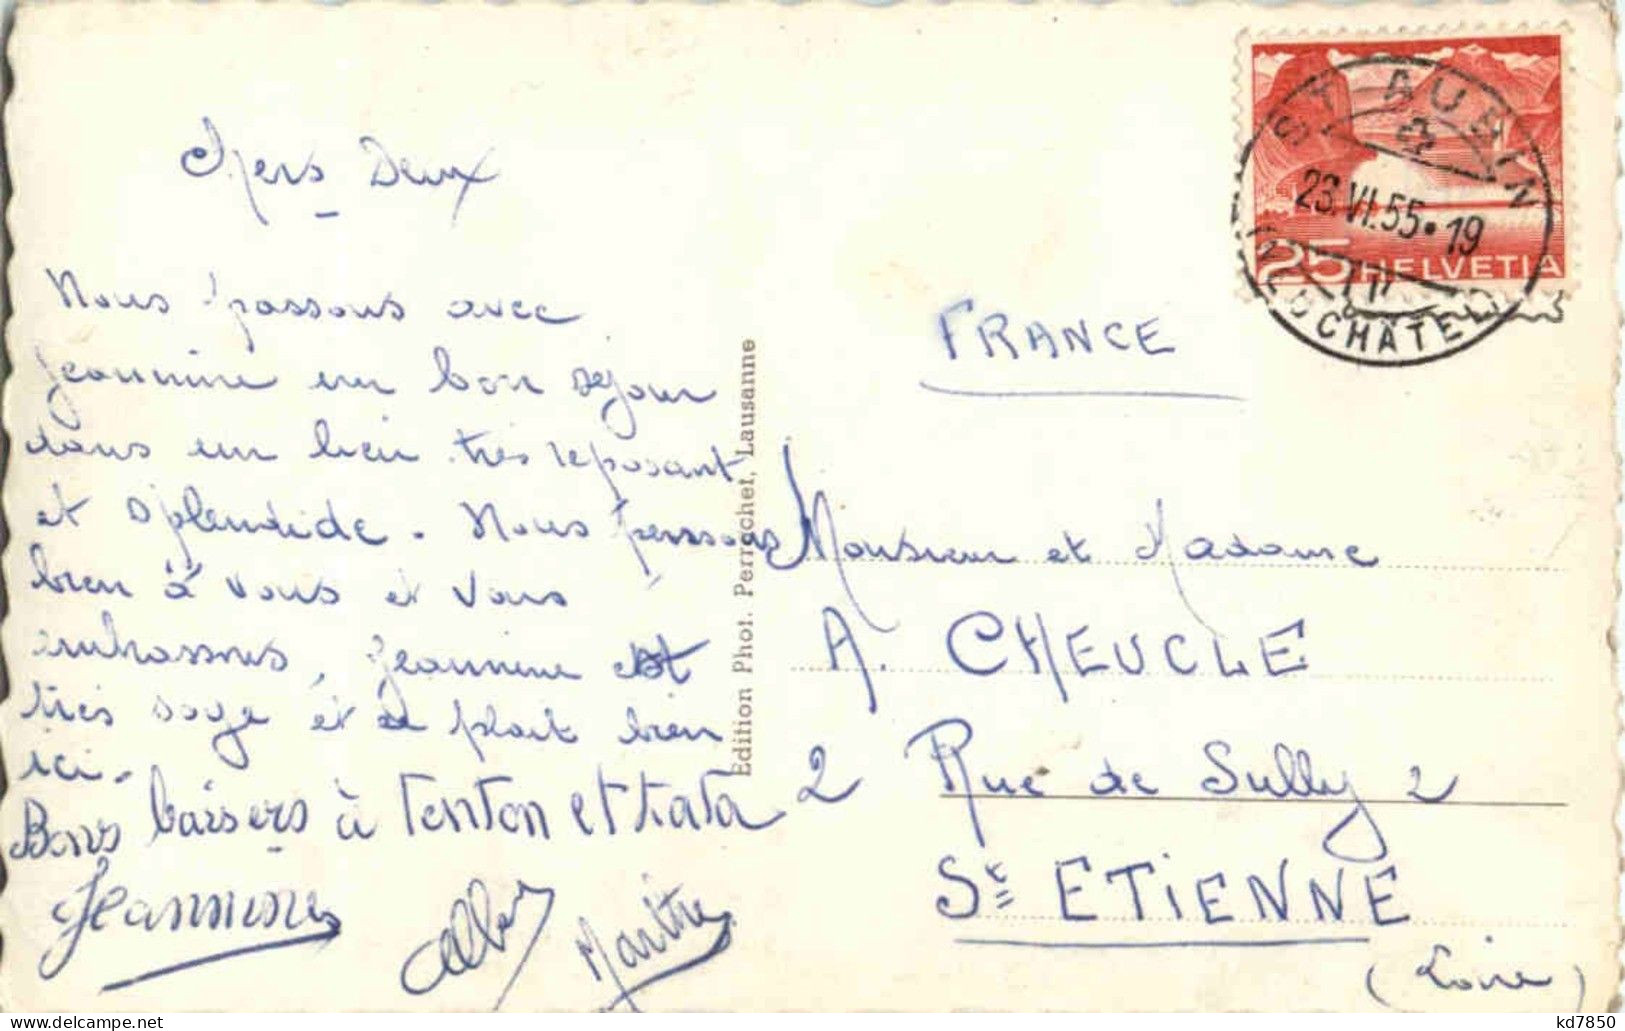 Chers Deux
Nous passons avec
Jeannine un bon séjour
dans un lieu très reposant
et splendide. Nous pensons
bien à vous et vous
embrassons, Jeannine est
très sage et se plait bien
ici.
Bons baisers à tonton et tata
Jeannine
Martine
Edition Phot. Perrochet, Lausanne
ST AUBIN
23.VI.55.19
(NEUCHÂTEL)
25 HELVETIA
FRANCE
Monsieur et Madame
A. CHEUCLE
2 Rue de Sully 2
St ETIENNE
(Loire)
delcampe.net
kd7850